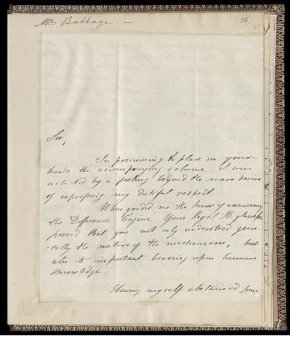 Mr Babbage.
86
Sir,
In presuming to place in your
hands the accompanying volume I am
actuated by a feeling beyond the mere desire
of expressing my dutiful respect.
When you did me the honor of examining
the Difference Engine Your Royal Highness
proved that you not only understood gene-
rally the nature of the mechanism, but
also its important bearing upon human
knowledge.
Having myself obtained from